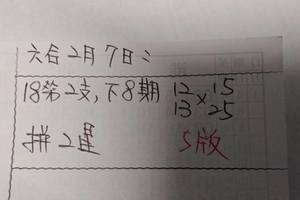 六合2月7日:
18第2支,下8期 12 13 × 15 25
拼2星 5版